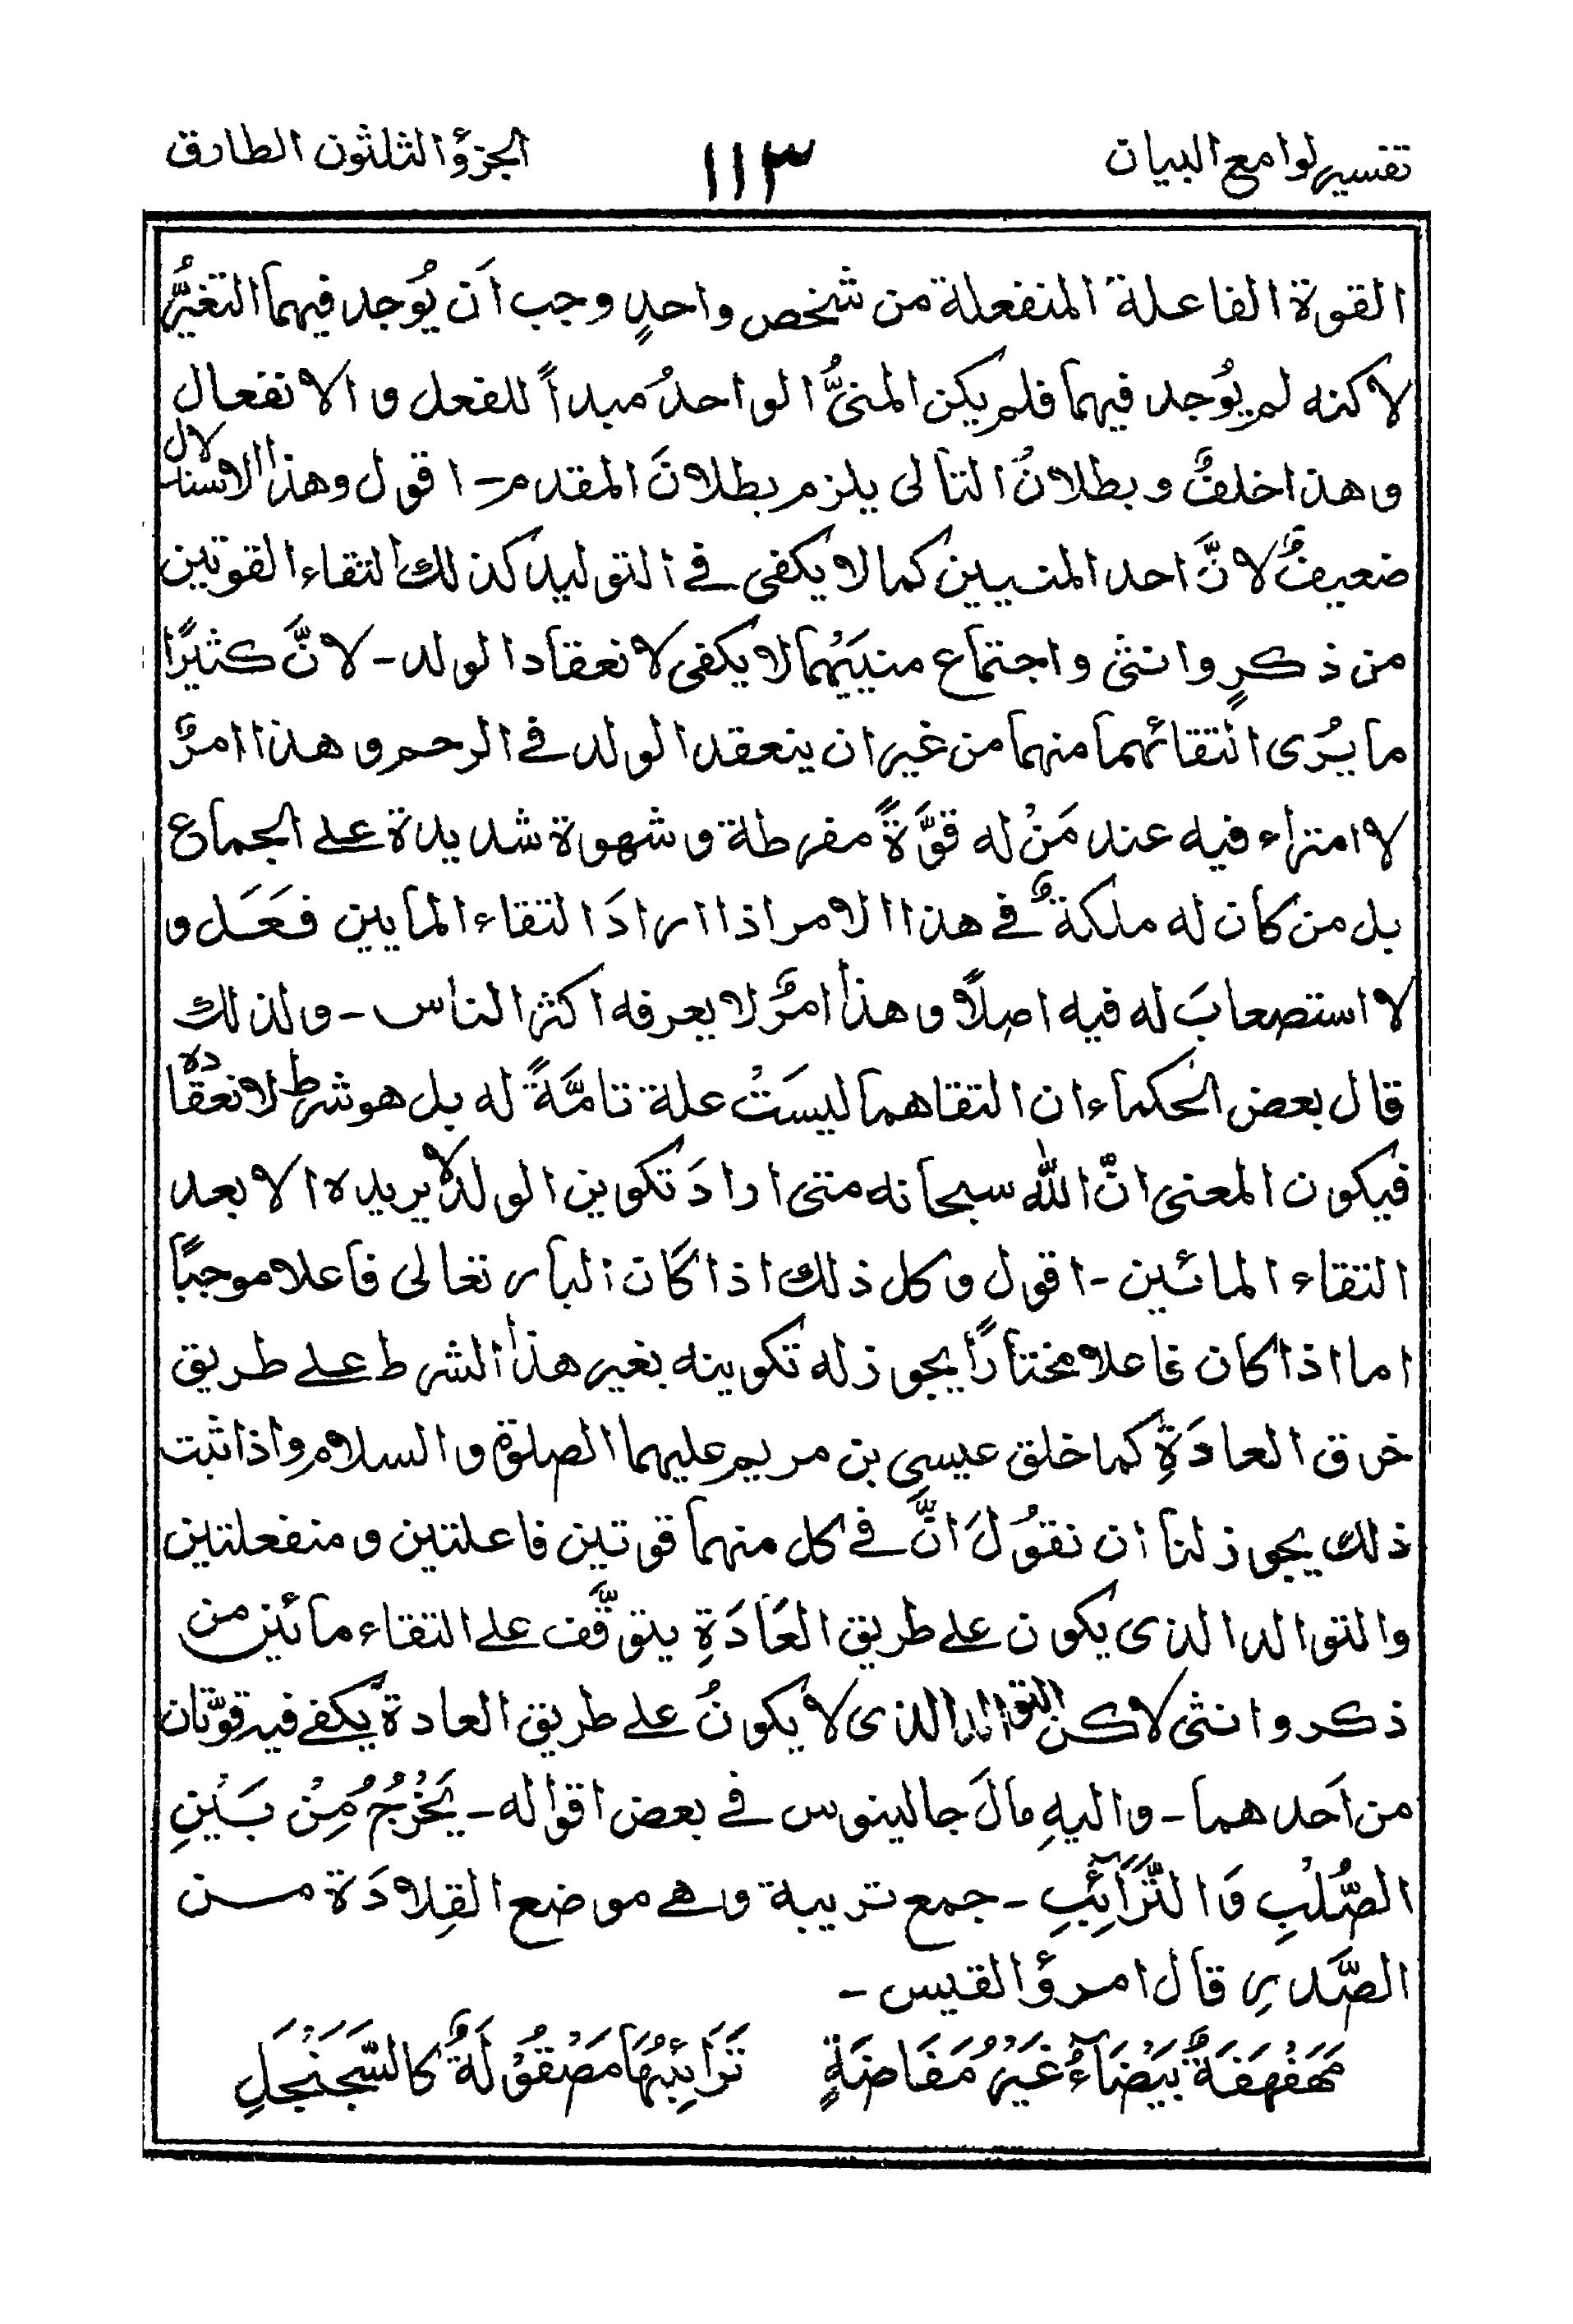 تفسير لوامع البيان ١١٣ الجزؤ الثلثون الطارق
القوة الفاعلة المنفعلة من شخص واحدٍ وجب اَن يُوجد فيهما التغيُّر
لاكنه لم يُوجد فيهما فلم يكن المنىُّ الواحدُ مبداً للفعل و الانفعال
و هذا خلفٌ و بطلانُ التالى يلزم بطلانَ المقدم - اقول وهذا الاستدلال
ضعيفٌ لانَّ احد المنيين كما لا يكفى فى التوليد كذلك التقاء القوتين
من ذكرٍ وانثى واجتماع منييَهُما لا يكفى لانعقاد الولد - لانَّ كثيرًا
ما يُرى التقائهما منهما من غير ان ينعقد الولد فى الرحم و هذا امرٌ
لا امتراء فيه عند مَنْ له قوَّةً مفرطة و شهوة شديدة على الجماع
بل من كان له ملكةٌ فى هذا الامر اذا ارادَ التقاء المايين فَعَل و
لا استصعابَ له فيه اصلاً و هذا امرٌ لا يعرفه اكثر الناس - ولذلك
قال بعض الحكماء ان التقاهما ليسَتْ علة تامَّةً له بل هو شرط لانعقاده
فيكون المعنى انّ الله سبحانه متى ارادَ تكوين الولد لا يريده الا بعد
التقاء المائين - اقول و كل ذلك اذا كان البار تعالى فاعلا موجبًا
اما اذا كان فاعلا مختارًا يجوز له تكوينه بغير هذا الشرط على طريق
خرق العادَةِ كما خلق عيسى بن مريم عليهما الصلوة و السلام و اذا ثبت
ذلك يجوز لنا ان نقوُلَ انَّ فى كل منهما قوتين فاعلتين و منفعلتين
والتوالد الذى يكون على طريق العَادَةِ يتوقَّف على التقاء مائين من
ذكر وانثى لاكن التوالد الذى لا يكونُ على طريق العادة يكفى فيه قوّتان
من اَحدهما - واليهِ مالَ جالينوس فى بعض اقواله - يَخْرُجُ مِنْ بَيْنِ
الصُّلْبِ وَالتَّرَآئِبِ - جمع تريبة وهى موضع القِلادَة من
الصَّدرِ قال امرؤ القيس -
مَهَفْهَفَةٌ بَيْضَآءُ غَيْرُ مُفَاضَةٍ تَرَائِبُهَا مَصْقُوْلَةٌ كالسَّجَنْجَلِ